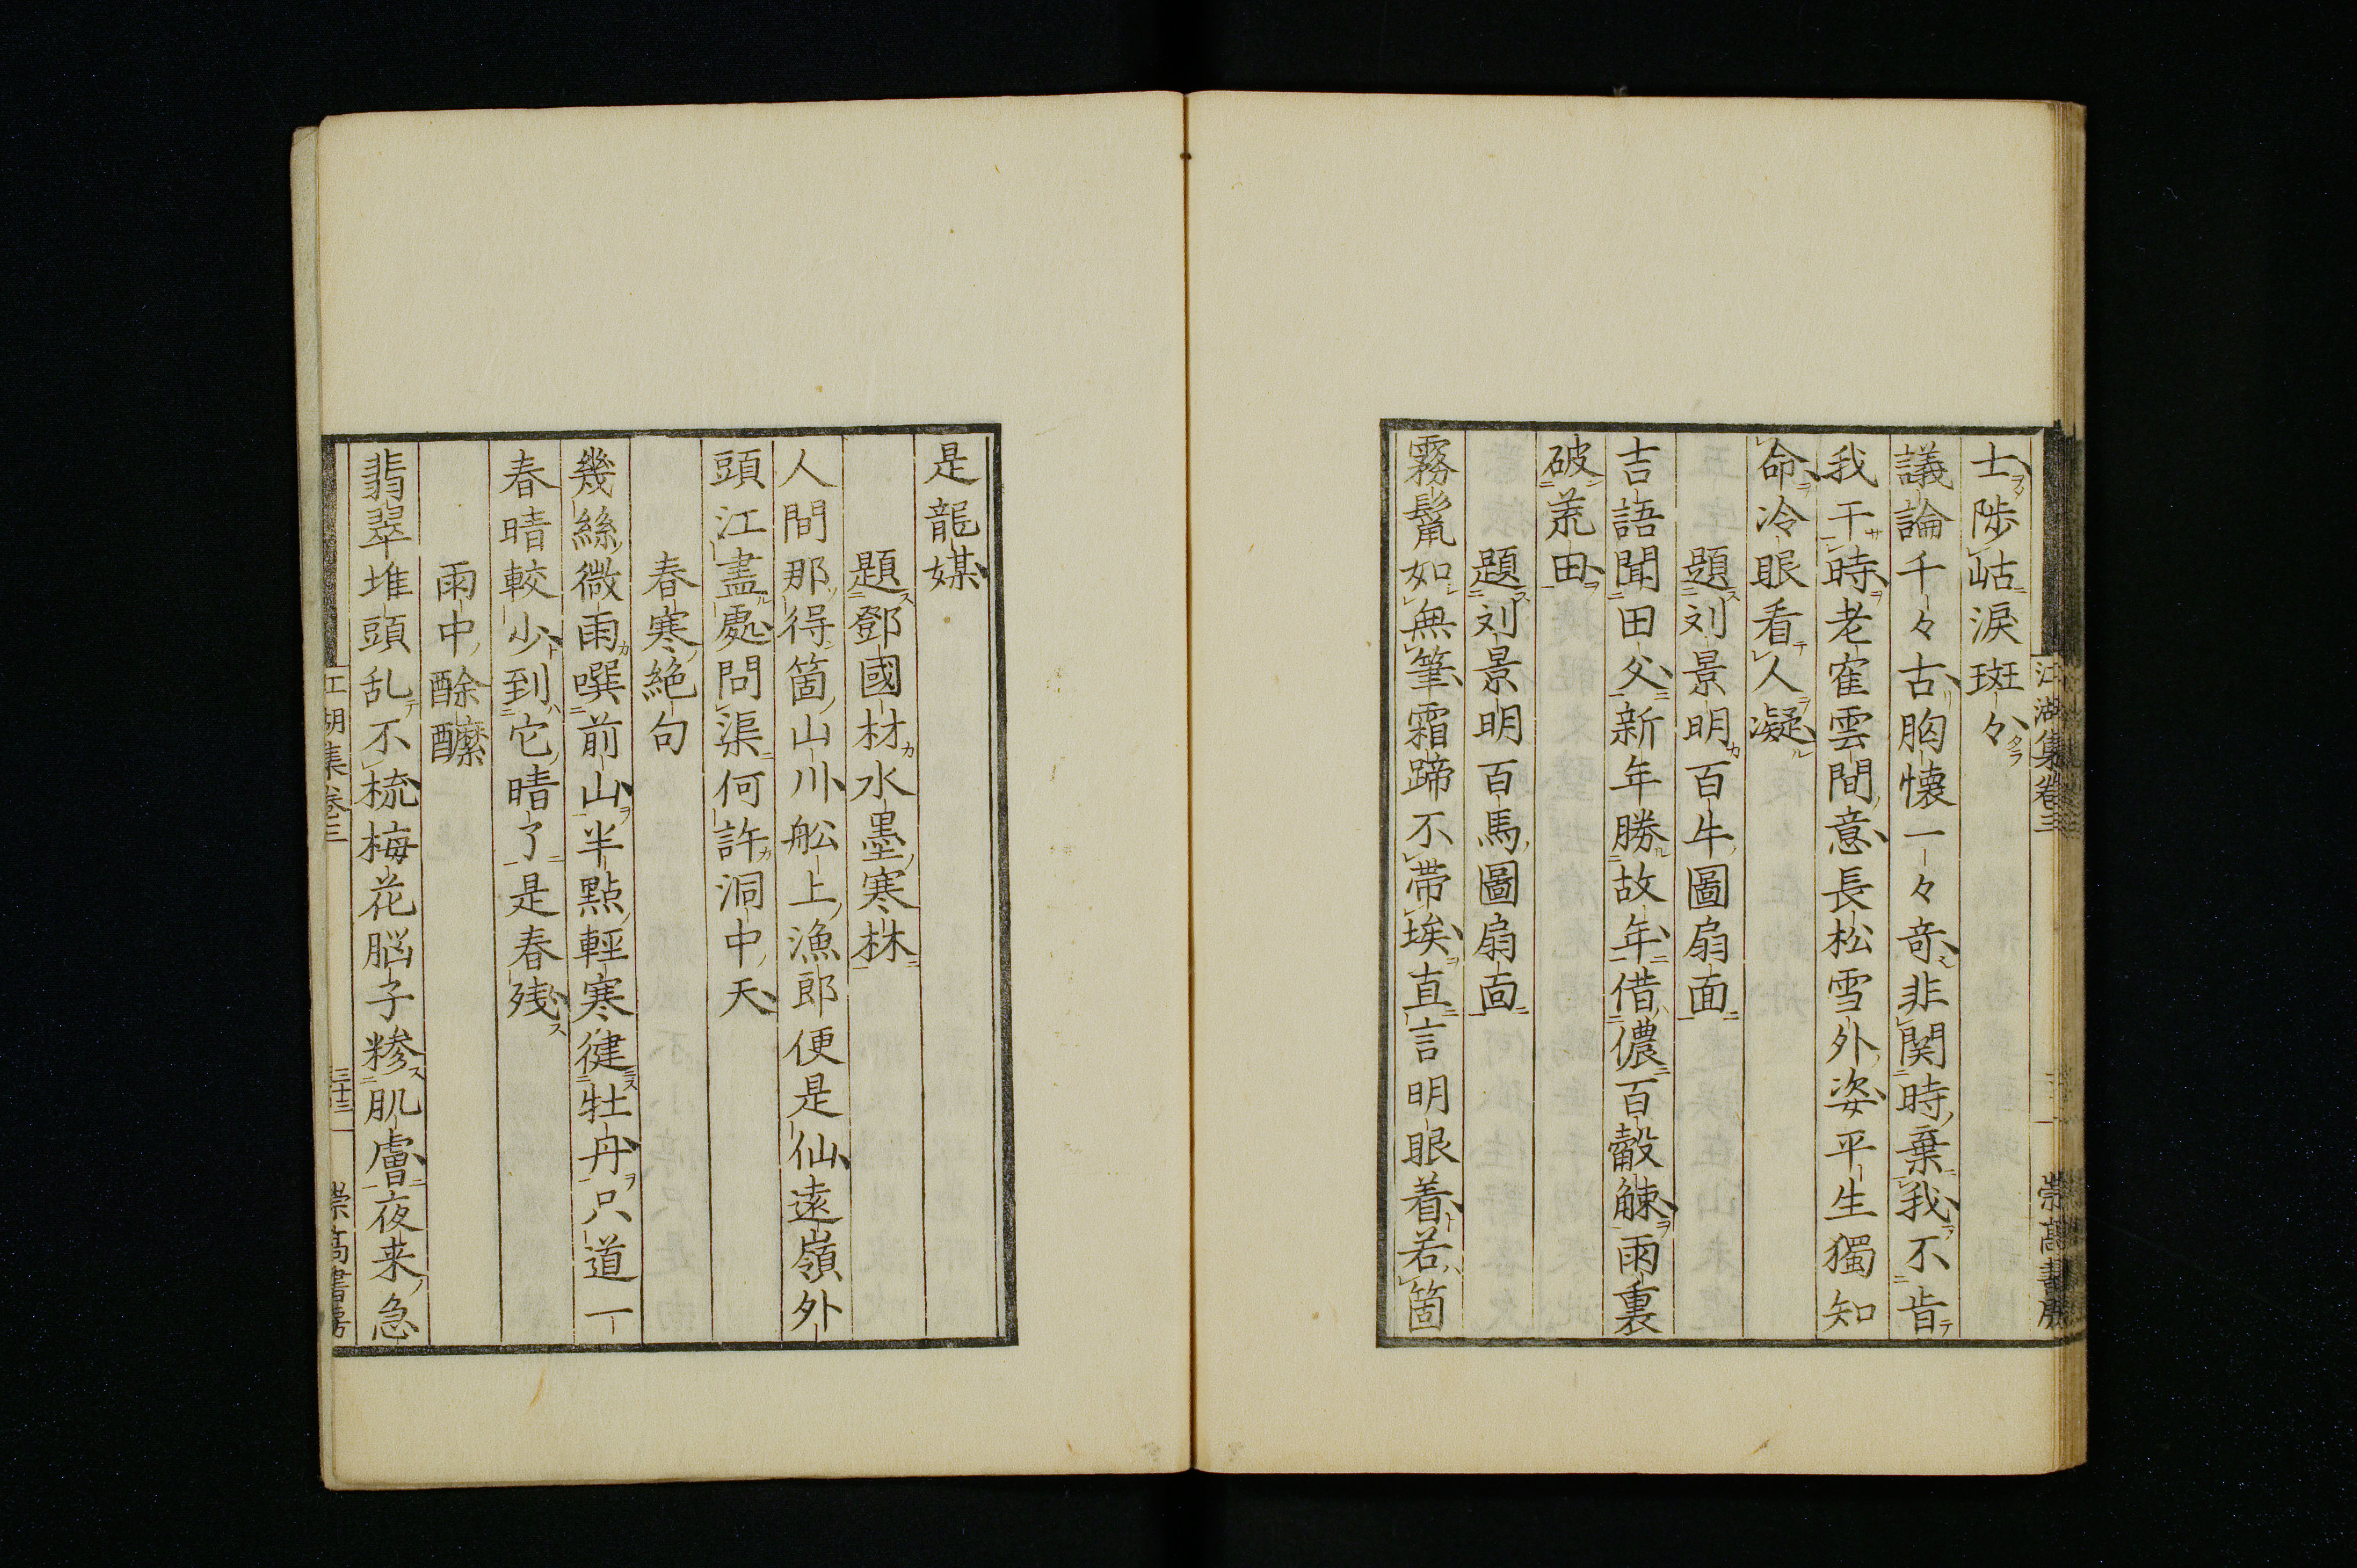 士陟岵淚斑々
議論千々古胸懐一々奇非関時棄我不肯
我干時老寉雲間意長松雪外姿平生獨知
命冷眼看人凝
題刘景明百牛圖扇面
吉語聞田父新年勝故年借儂百觳觫雨裏
破荒田
題刘景明百馬圖扇面
霧鬣如無筆霜蹄不帯埃直言明眼着若箇
江湖集巻三
崇髙書房
是龍媒
題鄧國材水墨寒林
人間那得箇山川舩上漁郎便是仙遠嶺外
頭江盡處問渠何許洞中天
春寒絶句
幾絲微雨噀前山半點輕寒健牡丹只道一
春晴較少到它晴了是春残
雨中酴醾
翡翠堆頭乱不梳梅花脳子糁肌膚夜来急
江湖集巻三
三十三
崇髙書房